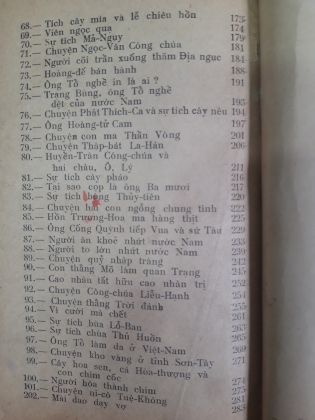 68.— Tích cây mía và lễ chiêu hồn 173
69.— Viên ngọc qua 174
70.— Sự tích Mã-Nguy 179
71.— Chuyện Ngọc-Vân Công chúa 181
72.— Người cõi trần xuống thăm Địa ngục 184
73.— Hoàng-đế bán hành 188
74.— Ông Tổ nghề in là ai ? 191
75.— Trạng Bùng, ông Tổ nghề
dệt của nước Nam 193
76.— Chuyện Phật Thích-Ca và sự tích cây nêu 194
77.— Ông Hoàng-tử Cam 197
78.— Chuyện con ma Thần Vòng 201
79.— Chuyện Thập-bát La-Hán 206
80.— Huyền-Trân Công-chúa và
hai châu, Ô, Lý 211
81.— Sự tích cây pháo 216
82.— Tại sao cọp là ông Ba mươi 217
83.— Sự tích bông Thủy-tiên 220
84.— Chuyện hai con ngỗng chung tình 222
85.— Hồn Trương-Hoa ma hàng thịt 225
86.— Ông Cống Quỳnh tiếp Vua và sứ Tàu 229
87.— Người ăn khoẻ nhứt nước Nam 233
88.— Người to lớn nhứt nước Nam 239
89.— Chuyện quỷ nhập tràng 242
90.— Con thằng Mõ làm quan Trạng 245
91.— Cao nhân tất hữu cao nhân trị 252
92.— Chuyện Công-chúa Liễu-Hạnh 254
93.— Chuyện thằng Trời đánh 255
94.— Vì cười mà chết 261
95.— Sự tích bùa Lỗ-Ban 263
96.— Sự tích chùa Thủ Huồn 265
97.— Ông Tổ làm da ở Việt-Nam 269
98.— Chuyện kho vàng ở tỉnh Sơn-Tây 271
99.— Cây hoa sen, cá Hóa-thượng và
con chim cốc 274
100.— Người hóa thành chim 275
101.— Chuyện ni-cô Tuệ-Không 281
102.— Mài dao dạy vợ 288